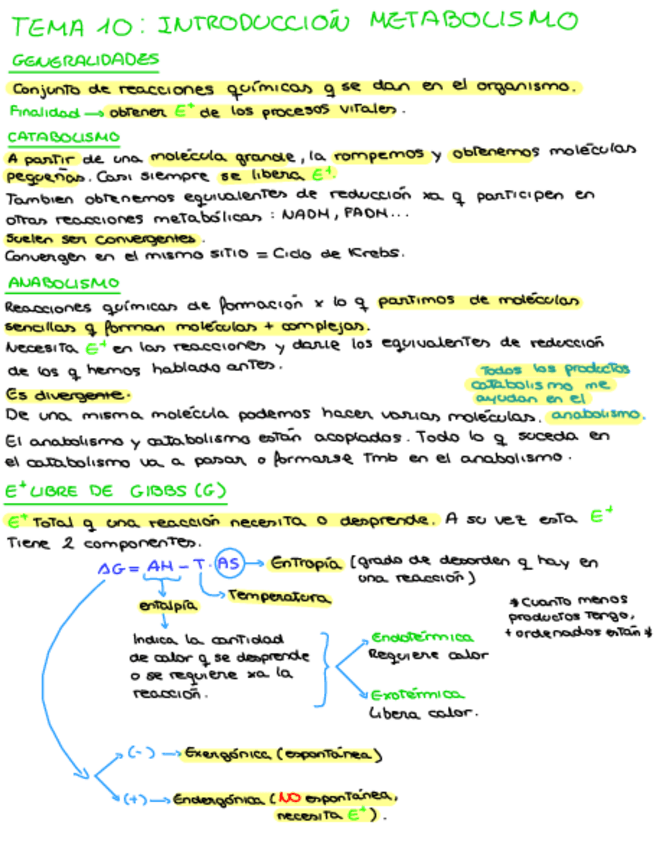 TEMA 10: INTRODUCCIÓN METABOLISMO
GENERALIDADES
Conjunto de reacciones químicas q se dan en el organismo.
Finalidad → obtener E⁺ de los procesos vitales.
CATABOLISMO
A partir de una molécula grande, la rompemos y obtenemos moléculas
pequeñas. Casi siempre se libera E⁺.
Tambien obtenemos equivalentes de reducción xa q participen en
otras reacciones metabólicas: NADH, FADH...
Suelen ser convergentes.
Convergen en el mismo sitio = Ciclo de Krebs.
ANABOLISMO
Reacciones químicas de formación x lo q partimos de moléculas
sencillas q forman moléculas + complejas.
Necesita E⁺ en las reacciones y darle los equivalentes de reducción
de los q hemos hablado antes.
Todos los productos
catabolismo me
ayudan en el
anabolismo.
Es divergente.
De una misma molécula podemos hacer varias moléculas.
El anabolismo y catabolismo están acoplados. Todo lo q suceda en
el catabolismo va a pasar o formarse tmb en el anabolismo.
E⁺ LIBRE DE GIBBS (G)
E⁺ Total q una reacción necesita o desprende. A su vez esta E⁺
Tiene 2 componentes.
ΔG = ΔH - T · ΔS → Entropía (grado de desorden q hay en
una reacción)
Temperatura
entalpía
* Cuanto menos
productos tengo,
+ ordenados están *
Indica la cantidad
de calor q se desprende
o se requiere xa la
reacción.
Endotérmica
Requiere calor
Exotérmica
Libera calor.
(-) → Exergónica (espontánea)
(+) → Endergónica (NO espontánea,
necesita E⁺).